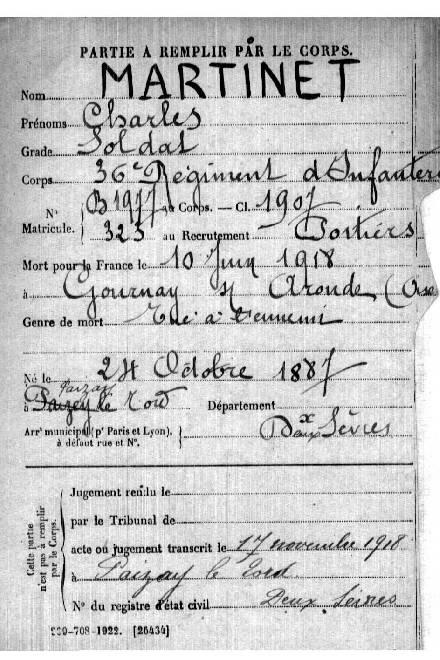 PARTIE A REMPLIR PAR LE CORPS.
Nom MARTINET
Prénoms Charles
Grade Soldat
Corps 36e Régiment d'Infanterie
N° B1977 au Corps. — Cl. 1907
Matricule. 323 au Recrutement Poitiers
Mort pour la France le 10 Juin 1918
à Gournay s/ Aronde (Oise
Genre de mort Tué à l'ennemi
Né le 24 Octobre 1887
Paizay
à Paizey le Tord Département
Arrt municipal (pr Paris et Lyon), Deux Sèvres
à défaut rue et N°.
Cette partie n'est pas à remplir par le Corps.
Jugement rendu le
par le Tribunal de
acte ou jugement transcrit le 17 novembre 1918
à Paizay le Tord
N° du registre d'état civil Deux Sèvres
-708-1922. [26434]